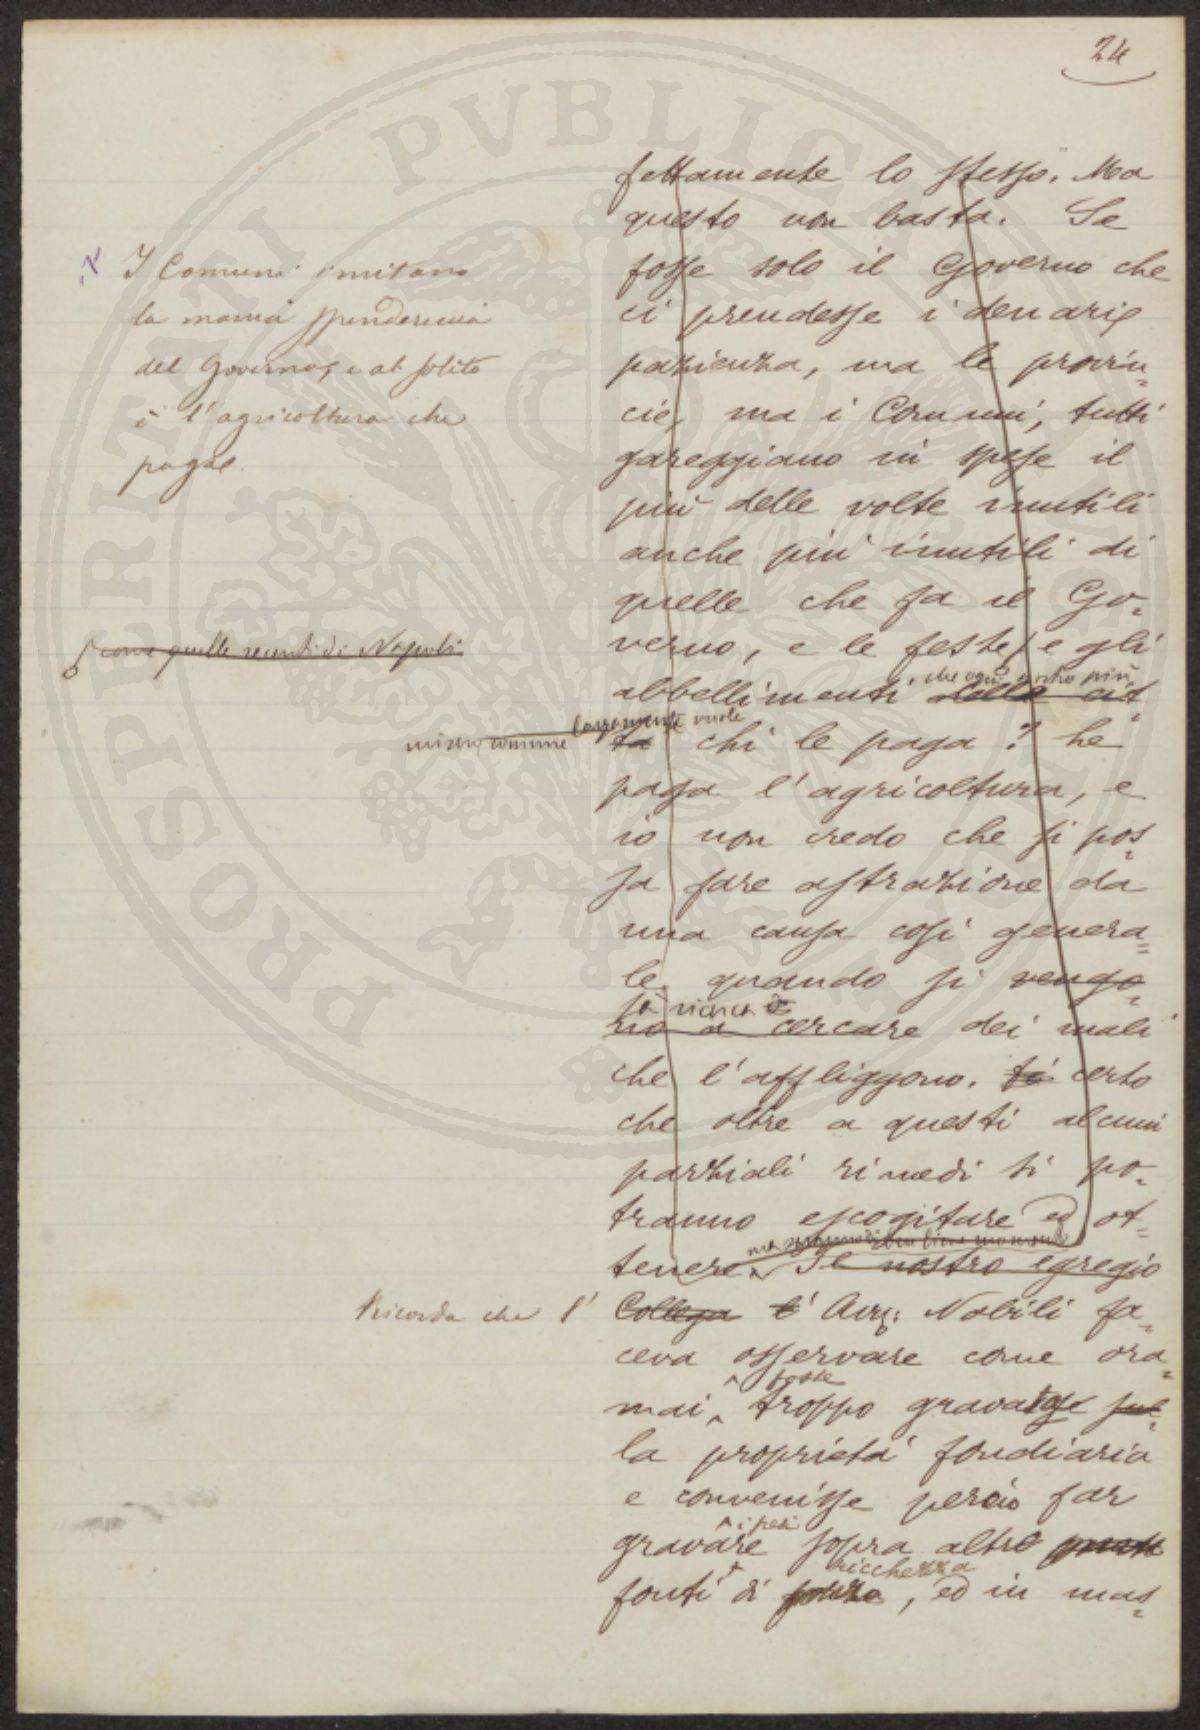 24
fettamente lo stesso. Ma
questo non basta. Se
fosse solo il Governo che
ci prendesse i denari
pazienza, ma le provin-
cie, ma i Comuni, tutti
gareggiano in spese il
più delle volte inutili
anche più inutili di
quelle che fa il Go-
verno, e le feste e gli
che ogni anche più
abbellimenti delle cit
tà chi le paga? Le
paga l'agricoltura, e
io non credo che si pos
sa fare astrazione da
una causa così genera=
le quando si vengo-
no a cercare dei mali
che l'affliggono. certo
che oltre a questi alcuni
parziali rimedi si po-
tranno escogitare ed ot-
tenere. Il nostro egregio
Collega l' Avv: Nobili fa-
ceva osservare come ora-
fosse
mai, troppo gravasse sul-
la proprietà fondiaria
e convenisse perciò far
i pesi
gravare sopra altre
ricchezza
fonti di , ed in mas-
I Comuni imitano
la mania spendereccia
del Governo, e al solito
è l'agricoltura che
paga.
come quelle recenti di Napoli
misero comune largamente vuole
Ricorda che l'
PROSPERITATI PVBLICAE